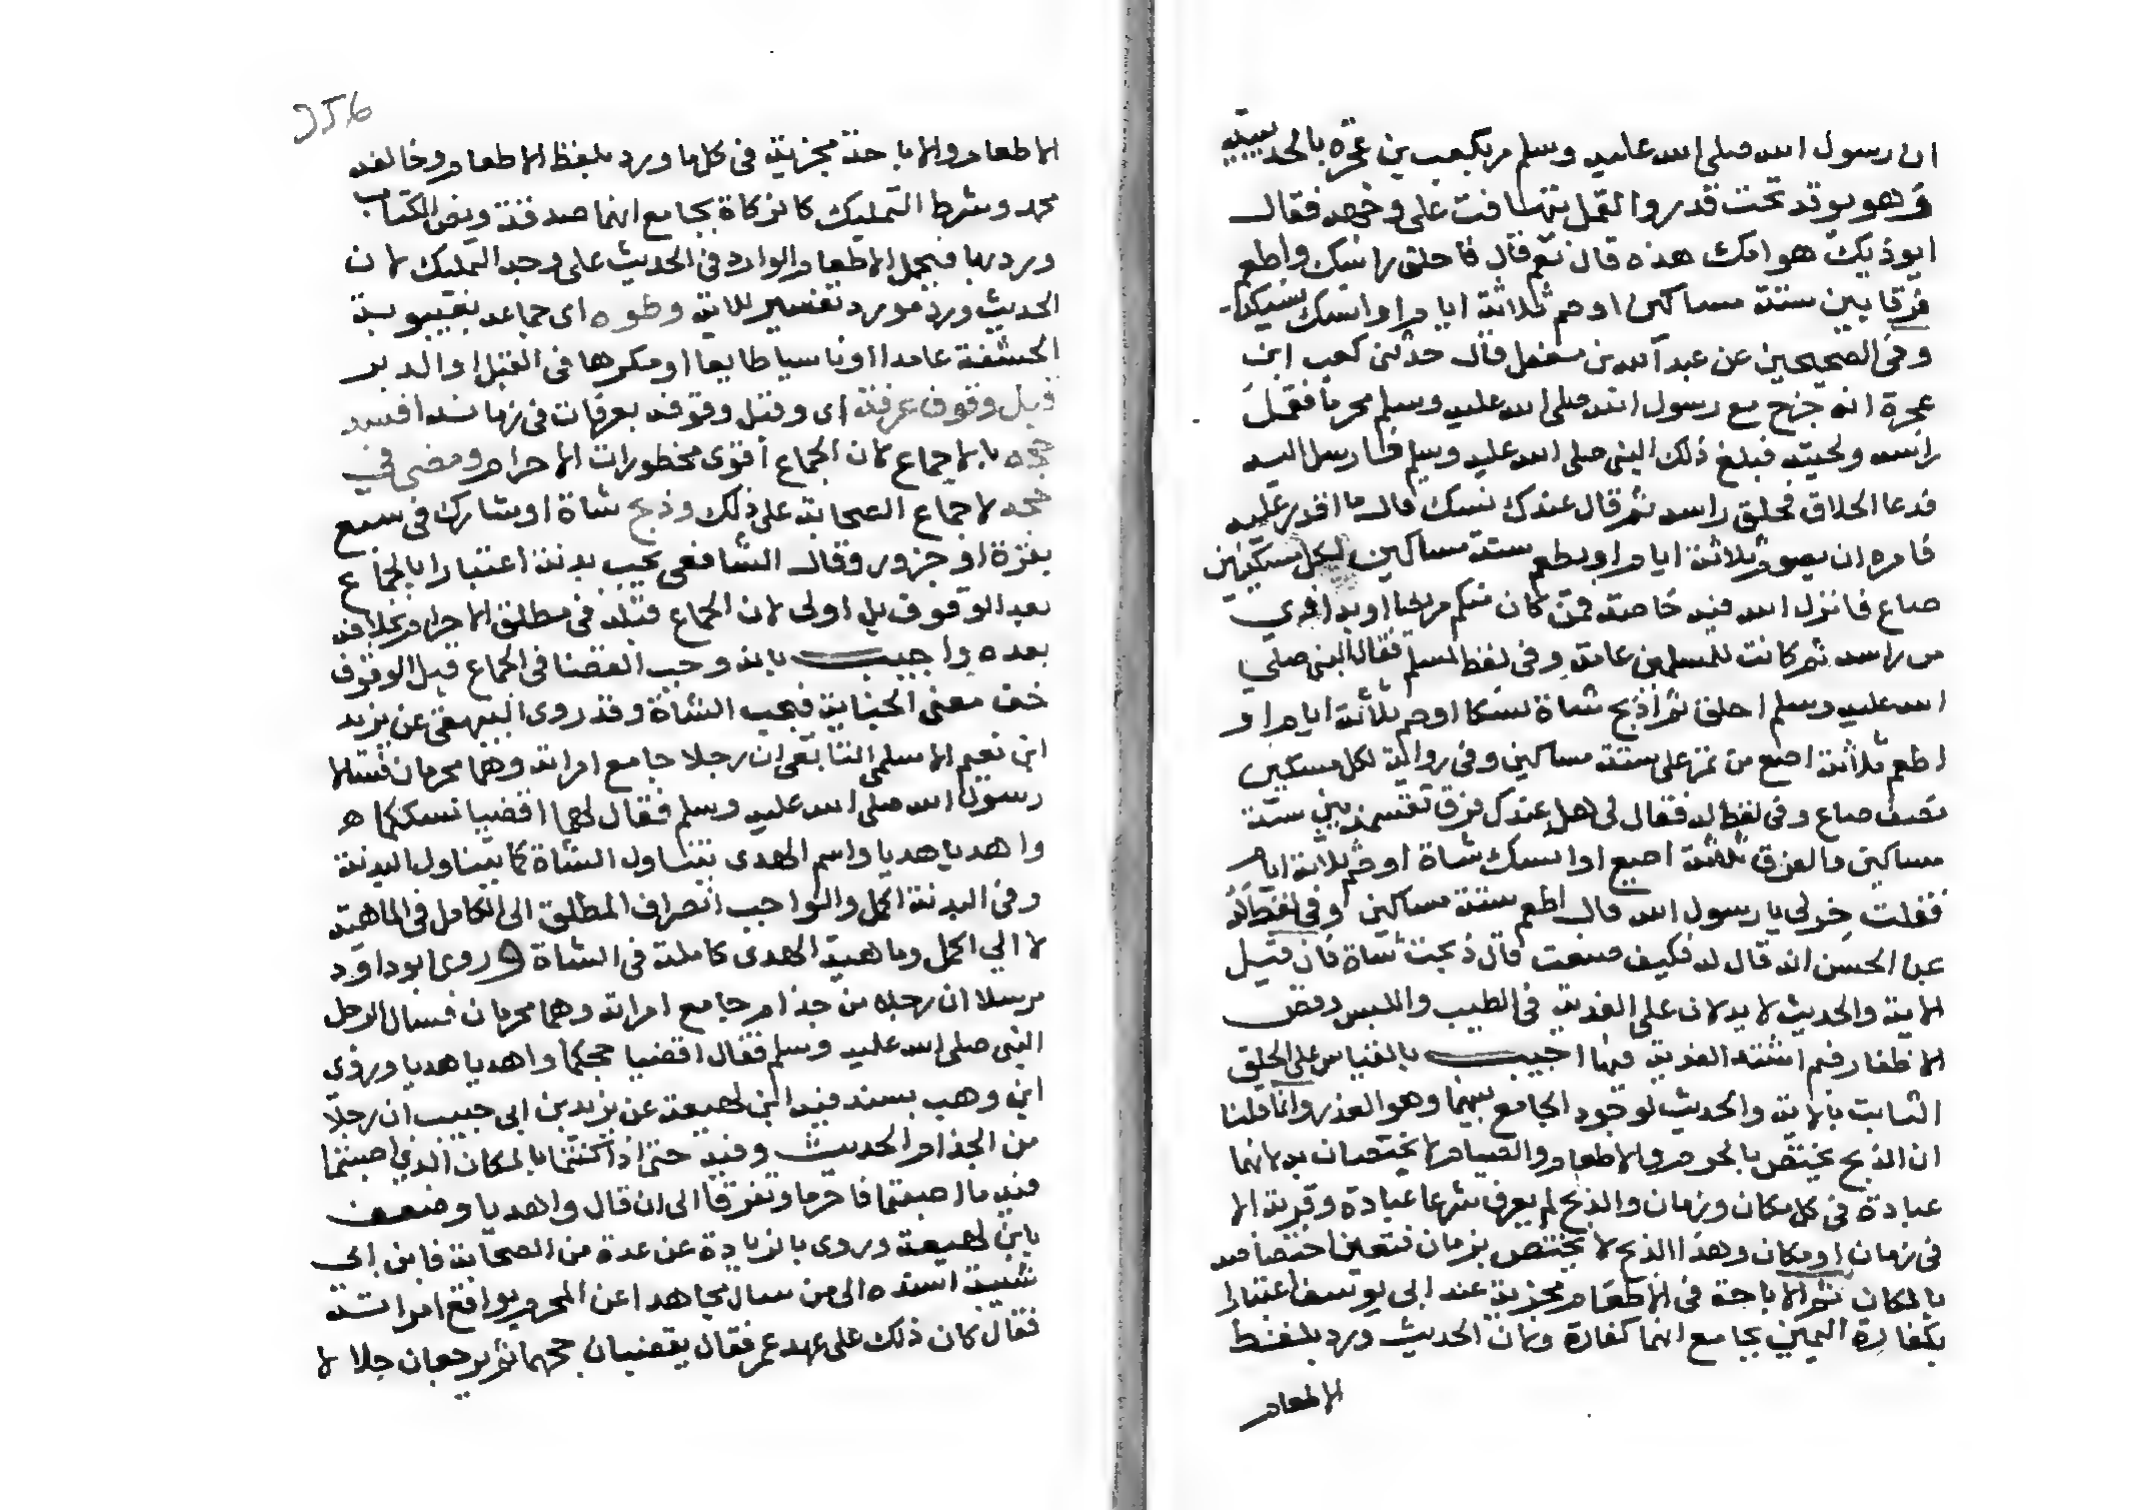 ان رسول الله صلى الله عليه وسلم مر بكعب بن عجرة بالحديبية
وهو يوقد تحت قدر والقمل يتهافت على وجهه فقال
ايوذيك هوامك هذه قال نعم قال فاحلق راسك واطعم
فرقا بين ستة مساكين او صم ثلاثة ايام او انسك نسيكة
وفي الصحيحين عن عبد الله بن معقل قال حدثني كعب ابن
عجرة انه خرج مع رسول الله صلى الله عليه وسلم محرما فقمل
راسه ولحيته فبلغ ذلك النبي صلى الله عليه وسلم فارسل اليه
فدعا الحلاق فحلق راسه ثم قال عندك نسك قال ما اقدر عليه
فامره ان يصوم ثلاثة ايام او يطعم ستة مساكين لكل مسكينين
صاع فانزل الله فيه خاصة فمن كان منكم مريضا او به اذى
من راسه ثم كانت للمسلمين عامة وفي لفظ لمسلم فقال النبي صلى
الله عليه وسلم احلق ثم اذبح شاة نسكا او صم ثلاثة ايام او
اطعم ثلاثة اصع من تمر على ستة مساكين وفي رواية لكل مسكين
نصف صاع وفي لفظ له فقال لي هل عندك فرق تقسمه بين ستة
مساكين والفرق ثلاثة اصع او انسك شاة او صم ثلاثة ايام
فقلت خر لي يا رسول الله قال اطعم ستة مساكين وفي لفظ له
عن الحسن انه قال له فكيف صنعت قال ذبحت شاة فان قيل
الاية والحديث لا يدلان على الفدية في الطيب واللبس وقص
الاظفار فبم اثبته الفدية فيها اجيب بالقياس على الحلق
الثابت بالاية والحديث لوجود الجامع بينهما وهو العذر وانما قلنا
ان الذبح يختص بالحرم والاطعام والصيام لا يختصان به لانهما
عبادة في كل مكان وزمان والذبح لم يعرف شرعا عبادة وقربة الا
في زمان او مكان وهذا الذبح لا يختص بزمان فتعين اختصاصه
بالمكان ثم الاباحة في الاطعام مجزية عند ابي يوسف اعتبارا
بكفارة اليمين بجامع انها كفارة وبان الحديث ورد بلفظ
الاطعام
956
الاطعام والاباحة مجزية في كل ما ورد بلفظ الاطعام وخالفه
محمد وشرط التمليك كالزكاة بجامع انها صدقة ونص الكتاب
ورد بها فيحمل الاطعام الوارد في الحديث على وجه التمليك لان
الحديث ورد مورد تفسير للاية وطوه اى جماعه بغيبوبة
الحشفة عامدا او ناسيا طايعا او مكرها في القبل او الدبر
قبل وقوف عرفة اى وقبل وقوفه بعرفات في زمانه افسد
حجه بالاجماع لان الجماع أقوى محظورات الاحرام ومضى في
حجه لاجماع الصحابة على ذلك وذبح شاة او شارك في سبع
بقرة او جزور وقال الشافعي يجب بدنة اعتبارا بالجماع
بعد الوقوف بل اولى لان الجماع قبله في مطلق الاحرام بخلافه
بعده واجيب بانه وجب القضا في الجماع قبل الوقوف
خف معنى الجناية فيجب الشاة وقد روى البيهقي عن يزيد
ابن نعيم الاسلمي التابعي ان رجلا جامع امراته وهما محرمان فسالا
رسول الله صلى الله عليه وسلم فقال لهما اقضيا نسككما ه
واهديا هديا واسم الهدى يتناول الشاة كما يتناول البدنة
وفي البدنة اكمل والواجب انصراف المطلق الى الكامل في الماهية
لا الى اكمل وماهية الهدى كاملة في الشاة وروى ابو داود
مرسلا ان رجلا من جذام جامع امراته وهما محرمان فسال الرجل
النبي صلى الله عليه وسلم فقال اقضيا حجكما واهديا هديا وروى
ابن وهب بسند فيه ابن لهيعة عن يزيد بن ابي حبيب ان رجلا
من الجذام الحديث وفيه حتى اذا كنتما بالمكان الذي اصبتما
فيه ما اصبتما فاحرما وتفرقا الى ان قال واهديا وضعف
بابن لهيعة وروى بالزيادة عن عدة من الصحابة فابن ابي
شيبة اسنده الى من سال مجاهدا عن المحرم يواقع امراته
فقال كان ذلك على عهد عمر فقال يقضيان حجهما ثم يرجعان حلالا